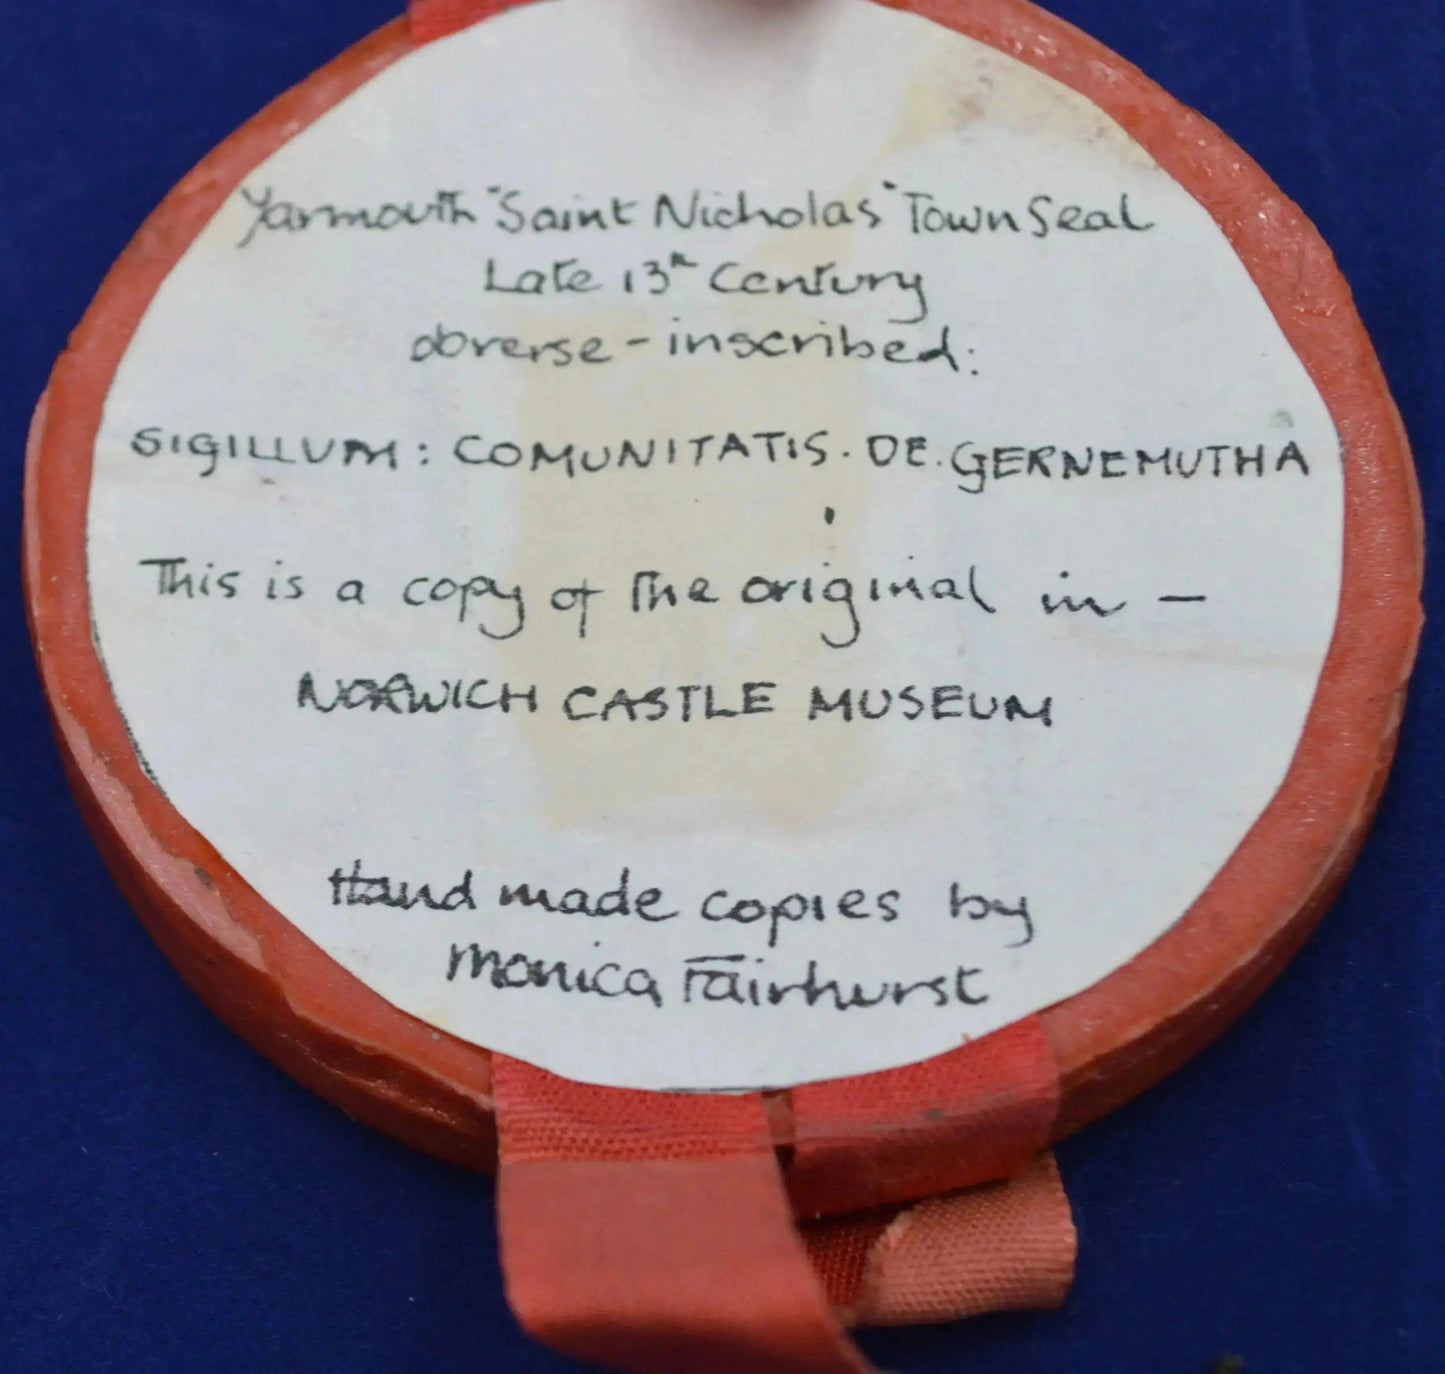 Yarmouth "Saint Nicholas" Town Seal
Late 13th Century
obverse - inscribed:
SIGILLUM : COMUNITATIS . DE . GERNEMUTHA
This is a copy of the original in —
NORWICH CASTLE MUSEUM
Hand made copies by
Monica Fairhurst